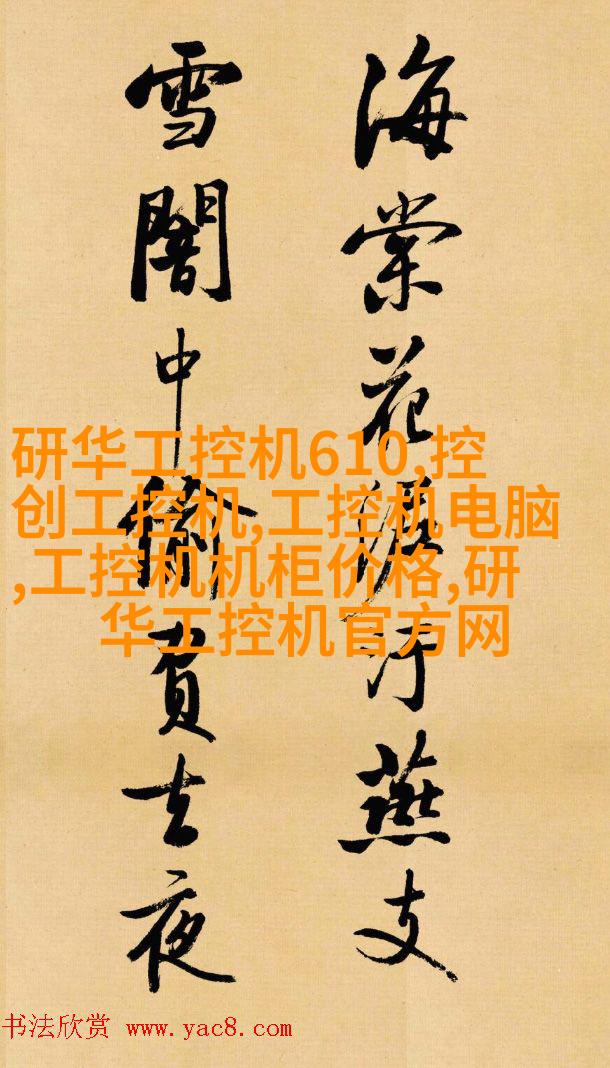 海棠花泥汙燕支
雪闇中偷負去夜
研华工控机610,控
创工控机,工控机电脑
,工控机机柜价格,研
华工控机官方网
书法欣赏 www.yac8.com